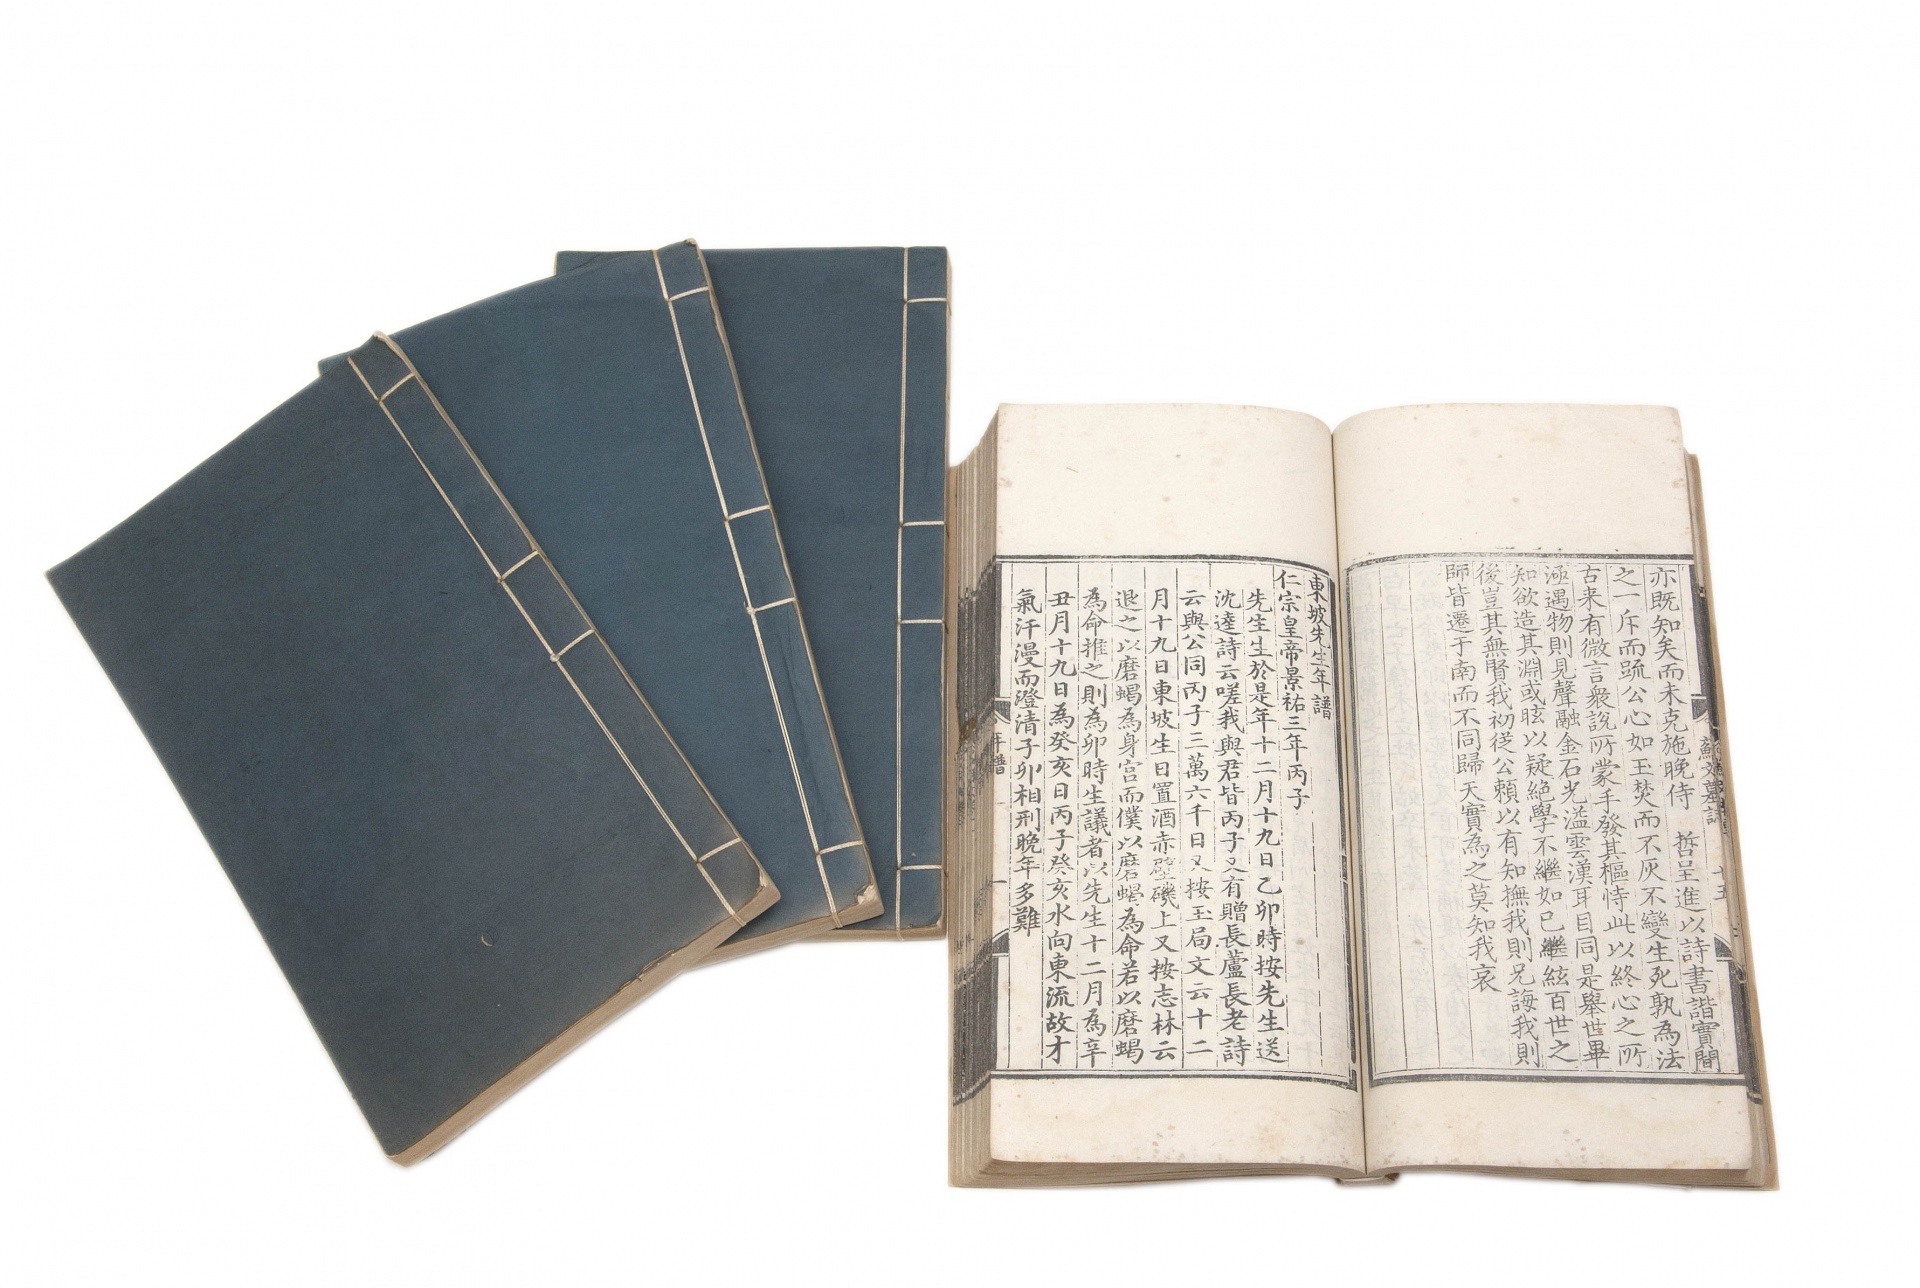 哲呈進以詩書諧實間
亦既知矣而未克施晚侍
之一斥而疏公心如玉焚而不灰不變生死孰為法
古来有微言衆説所蒙手發其樞恃此以終心之所
涵遇物則見聲融金石光溢雲漢耳目同是舉世畢
知欲造其淵或眩以疑絶學不繼如已繼絃百世之
後豈其無賢我初従公頼以有知撫我則兄誨我則
師皆遷于南而不同歸天實為之莫知我哀
東坡先生年譜
仁宗皇帝景祐三年丙子
先生生於是年十二月十九日乙卯時按先生送
沈逵詩云嗟我與君皆丙子又有贈長蘆長老詩
云與公同丙子三萬六千日又按玉局文云十二
月十九日東坡生日置酒赤壁磯上又按志林云
退之以磨蝎為身宫而僕以磨蝎為命若以磨蝎
為命推之則為卯時生議者以先生十二月為辛
丑月十九日為癸亥日丙子癸亥水向東流故才
氣汗漫而澄清子卯相刑晚年多難
年譜